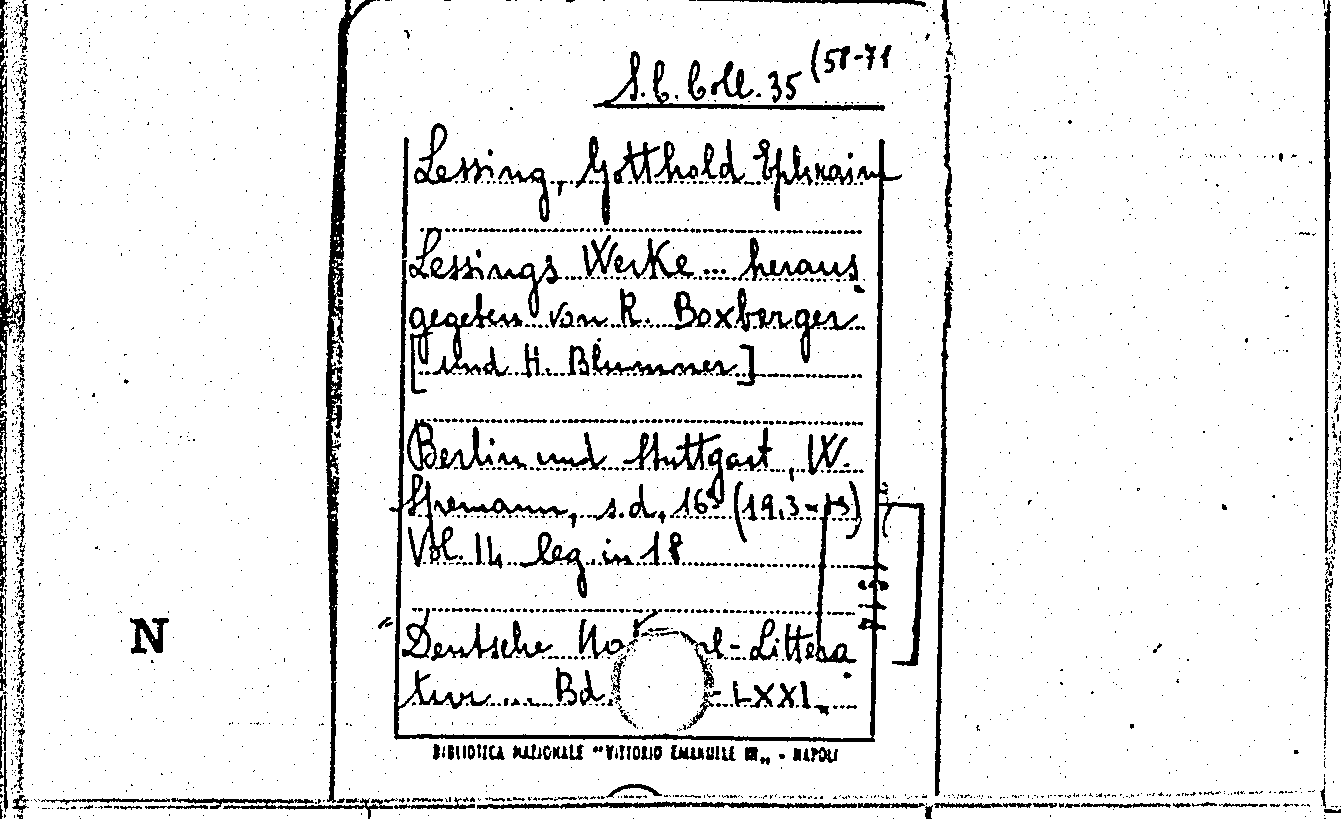 S.C. Coll. 35 (58-71
Lessing, Gotthold Ephraim
Lessings Werke ... heraus
gegeben von R. Boxberger
[und H. Blummer]
Berlin und Stuttgart, W.
Spemann, s.d., 16°
Vol. 14 leg. in 18
Deutsche Littera
tur ... Bd. - LXXI.
N
BIBLIOTECA NAZIONALE "VITTORIO EMANUELE III„ - NAPOLI